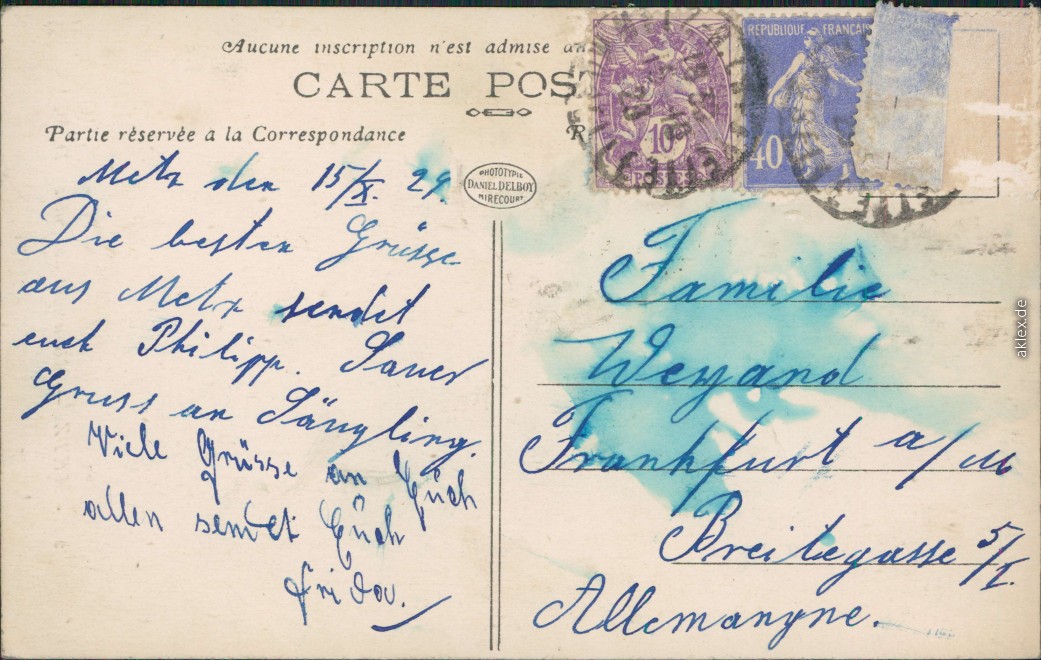 Aucune inscription n'est admise
CARTE POST
Partie réservée a la Correspondance
R
PHOTOTYPIE
DANIEL DELBOY
MIRECOURT
REPUBLIQUE FRANCAI
10
POSTES
40
Metz den 15/X. 29.
Die besten Grüsse
aus Metz sendet
euch Philipp. Sauer
Gruss an Säugling.
Viele Grüsse an Euch
allen sendet Euch
Frida.
Familie
Weyand
Frankfurt a/M
Breitegasse 5/I.
Allemangne.
aklex.de